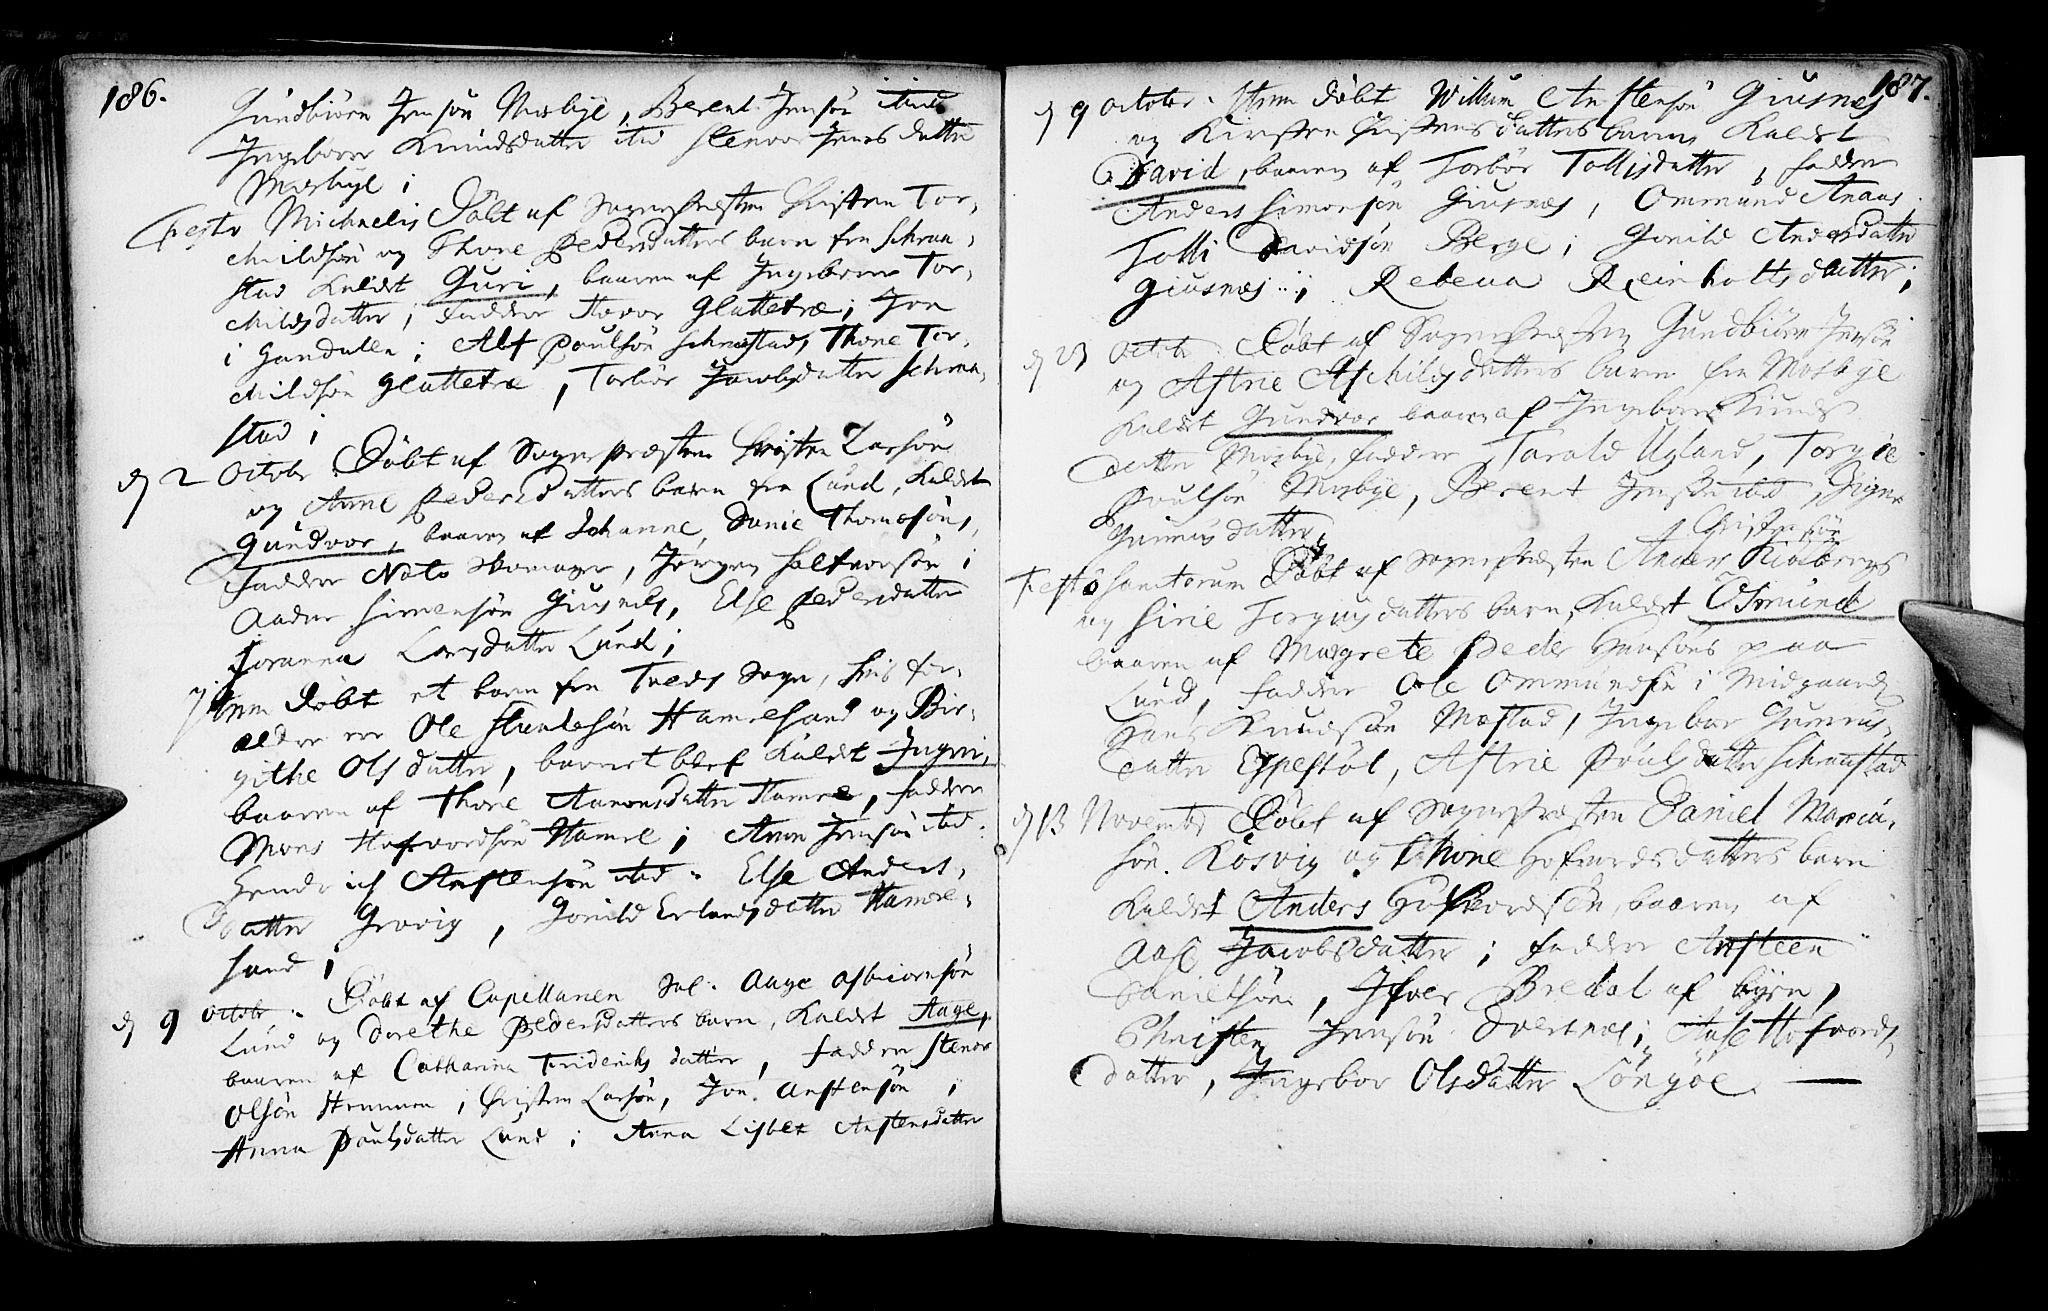 186.
Gundbiörn Jensön Mosbye, Berent Jensön ibid
Ingeborr Knudsdatter ibid Stenvor Jensdatter
Mosbye ;
Festo Michaelis Döbt af Sognepræsten Christen Tor-
childsön og Thore Pedersdatters barn fra Schraa-
stad kaldet Guri, baaren af Ingeborr Tor-
childsdatter ; Faddere Glattetræ ; Jon
i Gandalln ; Alf Poulsön Schrastad, Thore Tor-
childsön Glattetræ, Torbör Jacobsdatter Schraa-
stad ;
d 2 Octobr. Döbt af Sognepræsten Christen Larsön
og Anne Pedersdatters barn fra Lund, kaldet
Gundvor, baaren af Johanne Danie Thomesöns,
Faddere Nots Skomager, Jörgen Halfvorsön i
Aadne Simensön Giusnes, Else Pedersdatter
Joranna Larsdatter Lund ;
Item Döbt et barn fra Tveds Sogn, hvis for-
ældre er Ole Hamresand og Bir-
githe Olsdatter, barnet blef kaldet Ingeri,
baaren af Thore Aanensdatter Hamre, faddere
Mons Hofvordsön Hamre ; Anne Jensön ibid.
Hendrich Anstensön ibid. Else Anders-
datter Grovig, Gonild Erlandsdatter Hamre-
sand ;
d 9 Octobr. Döbt af Capellanen Sal. Aage Asbiörnsön
Lund og Dorethe Pedersdatters barn, kaldet Aage,
baaren af Catharina Friderichsdatter, faddere Stener
Olsön Hemmen, Christen Larsön, Jon Anstensön ;
Anna Poulsdatter Lund ; Anna Lisbet Anstensdatter
187.
d 9 October. Item döbt Willum Anstensön Giusnes
og Kirsten Christensdatters barn kaldet
David, baaren af Torbör Tollisdatter, faddere
Anders Simonsön Giusnes, Ommund Anaas
Tolli Davidsön Berge ; Gonild Andersdatter
Giusnes ; Rebecca Reinholtsdatter ;
d 23 Octobr. Döbt af Sognepræsten Gundbiörn Jensön
og Astrie Aschildsdatters barn fra Mosbye
kaldet Gundvor baaren af Ingebor Knuds-
datter Mosbye, faddere Tarald Ugland, Torgie
Poulsön Mosbye, Berent Jensön ibid, Signe
Gunnersdatter,
Christensön
Festo Sanctorum Döbt af Sognepræsten Anders Kiosbergs
og Sirie Torgiusdatters barn, kaldet Osmund
baaren af Margrete Peder Hansöns paa
Lund, Faddere Ole Ommundsen i Midgaard
Hans Knudsön Mostad, Ingebor Gunners-
datter Eppestöl, Astrie Poulsdatter Schraastad
d 13 Novembr Döbt af Sognepræsten Daniel Maria-
sön. Kosvig og Thore Hofvordsdatters barn
kaldet Anders Hofvordsön, baaren af
Aase Jacobsdatter ; faddere Ansteen
Danielsön, Ifver Bredal af byen,
Christen Jensön Dvertnes ; Aase Hofvords-
datter, Ingebor Olsdatter Löngöe.